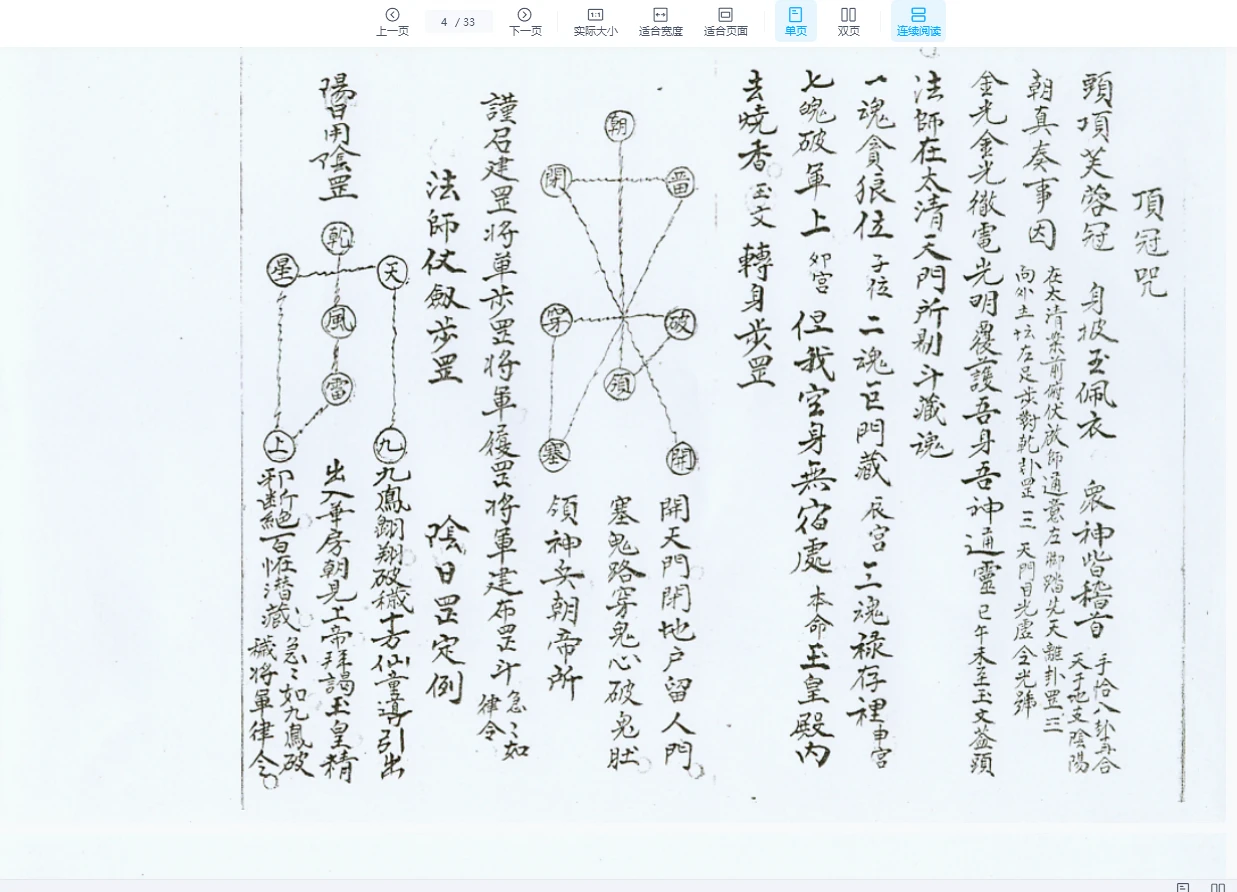 上一页
4 / 33
下一页
实际大小
适合宽度
适合页面
单页
双页
连续阅读
頂冠咒
頭頂芙蓉冠 身披玉佩衣 衆神皆稽首 手恰八卦再合天手地支陰陽
朝真奏事因 在太清業前俯伏啟師通意左脚踏先天離卦罡三向外主坛左足步對乾卦罡三天門目光虛全光號
金光金光徹電光明覆護吾身吾神通靈 巳午未至玉文盖頭
法師在太清天門所剔斗藏魂
一魂貪狼位 子位 二魂巨門藏 辰宮 三魂祿存裡 申宮
七魄破軍上 卯宮 但我空身無宿處 本命 玉皇殿內
去燒香 玉文 轉身步罡
朝
閉
畱
穿
破
領
塞
開
開天門閉地户留人門
塞鬼路穿鬼心破鬼肚
領神兵朝帝所
謹召建罡将軍步罡将軍履罡将軍建布罡斗 急〻如律令
法師仗劔步罡 陰日罡定例
陽日用陰罡
乾
星
天
風
雷
上
九
九鳳翺翔破穢十方仙童導引出
出入華房朝見上帝拜謁玉皇精
邪断絕百怪潜藏 急〻如九鳳破穢将軍律令